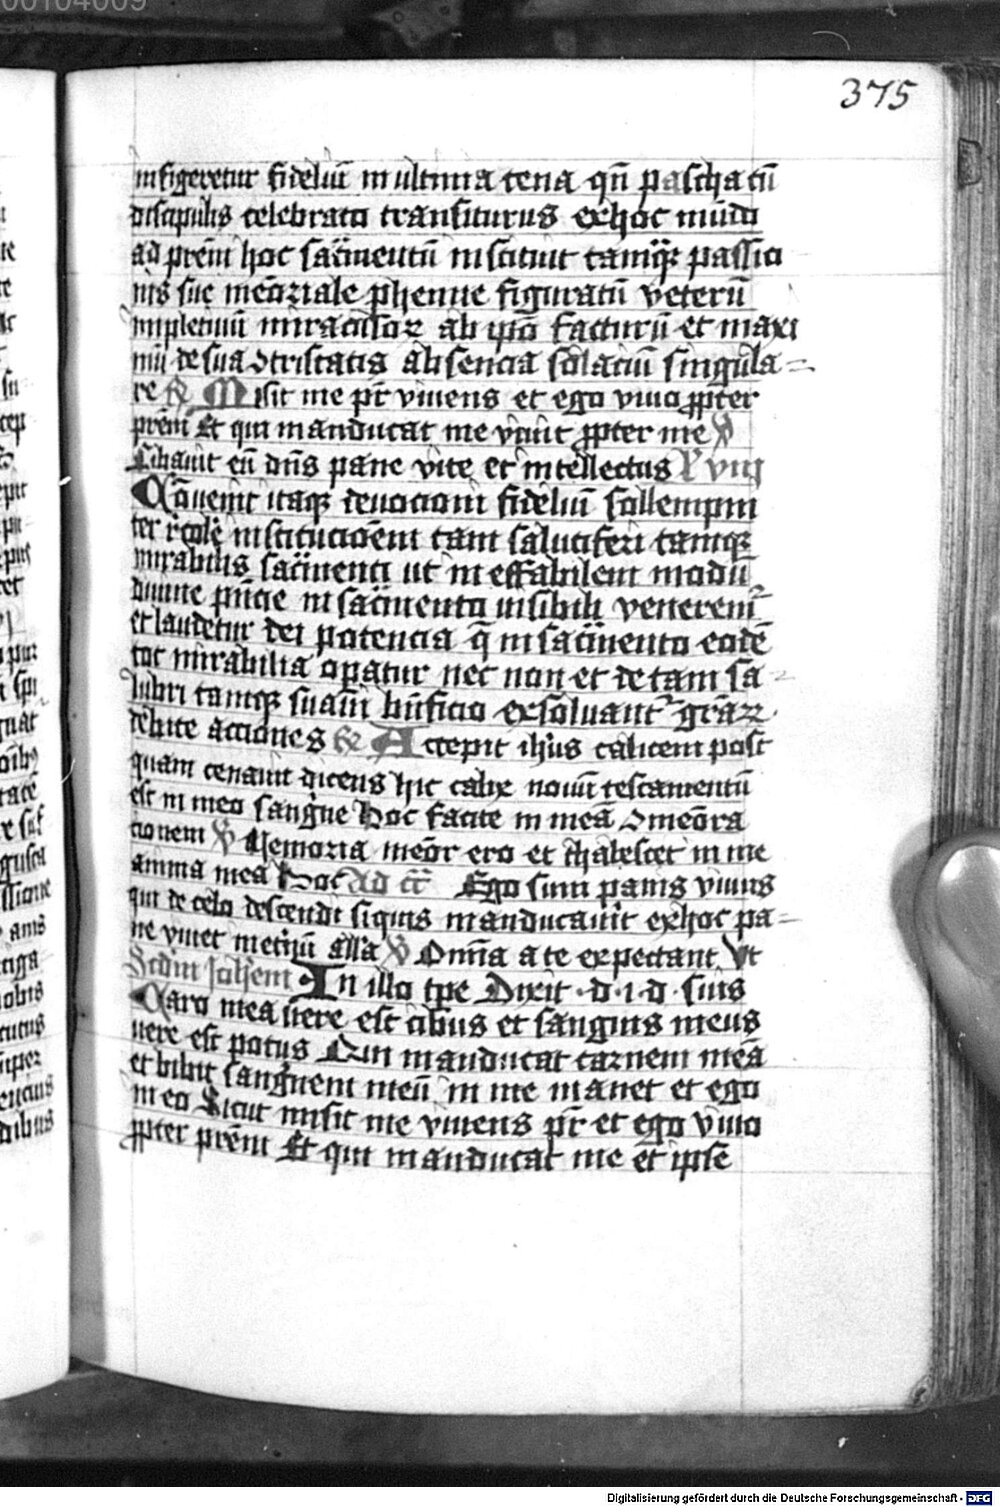 00104009
375
infigeretur fideliū in ultima cena qn̄ pascha cū
discipulis celebrato transiturus ex hoc mūdo
ad prēm hoc sac̄mentū instituit tamq̄ passio
nis sue mēoriale phenne figuratū veterū
impletiuū miraculoꝝ ab ip̄o factuꝝ et maxi
mū de sua ꝯtristatis absencia solaciū singula=
re ℟ Misit me pr̄ viuens et ego viuo ꝓpter
prēm Et qui manducat me viuit ꝓpter me ℣
Cibauit eū dn̄s pane vite et intellectus
Cōuenit itaqꝫ deuocioni fideliū sollempni
ter r̄cole institucioēm tam saluciferi tamqꝫ
mirabilis sac̄menti ut ineffabilem modū
diuine pn̄cie in sac̄mento uisibili veneremꝰ
et laudetur dei potencia q̄ in sac̄mento eodē
tot mirabilia opatur nec non et de tam sa=
lubri tamqꝫ suaui bn̄ficio exsoluantꝰ gr̄aꝝ
debite acciones ℟ Accepit ih̄us calicem post
quam cenauit dicens hic calix nouū testamentū
est in meo sangne Hoc facite in meā ꝯmēora
cionem ℣ Memoria memōr ero et thabescet in me
anima mea Hoc Ad cc̄ Ego sum panis viuus
qui de celo descendi siquis manducauit ex hoc pa=
ne viuet in etnū alla ℣ Om̄ia a te expectant Ut
Scdm Joh̄em In illo tp̄e Dixit · d · i · d · suis
Caro mea uere est cibus et sanguis meus
uere est potus Qui manducat carnem meā
et bibit sangnem meū in me manet et ego
in eo Sicut misit me viuens pr̄ et ego viuo
ꝓpter prēm Et qui manducat me et ipse
Digitalisierung gefördert durch die Deutsche Forschungsgemeinschaft - DFG